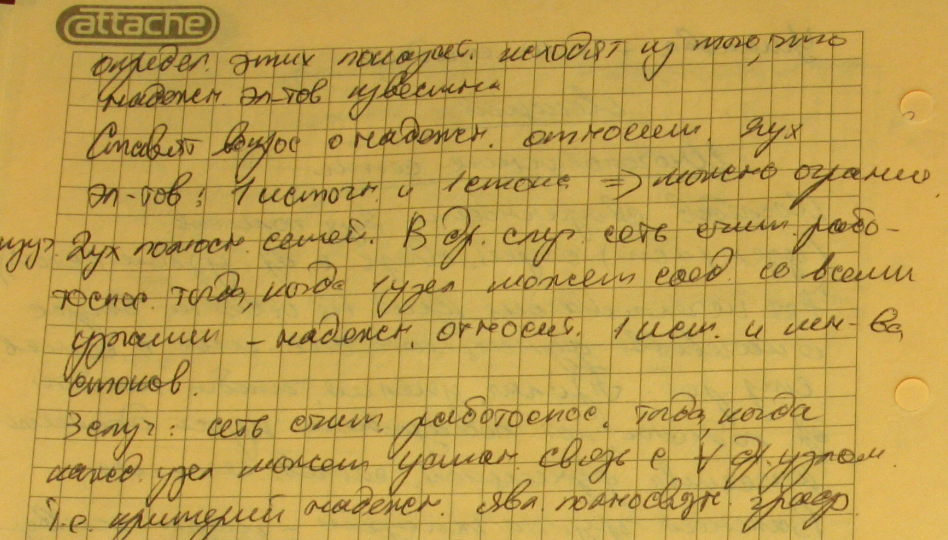 attache
определ. этих показат. исходят из того, что
надежн. эл-тов известна
Ставят вопрос о надежн. относит. двух
эл-тов: 1 источн. и 1 стока => можно огранич.
двух полюсн. сетей. В др. случ. сеть счит. рабо-
тоспос. тогда, когда 1 узел может соед. со всеми
другими - надежн. относит. 1 ист. и мн-ва
стоков.
3 случ: сеть счит. работоспос. тогда, когда
кажд. узел может устан. связь с ∀ др. узлом.
Т.е. критерий надежн. явл. полносвязн. граф